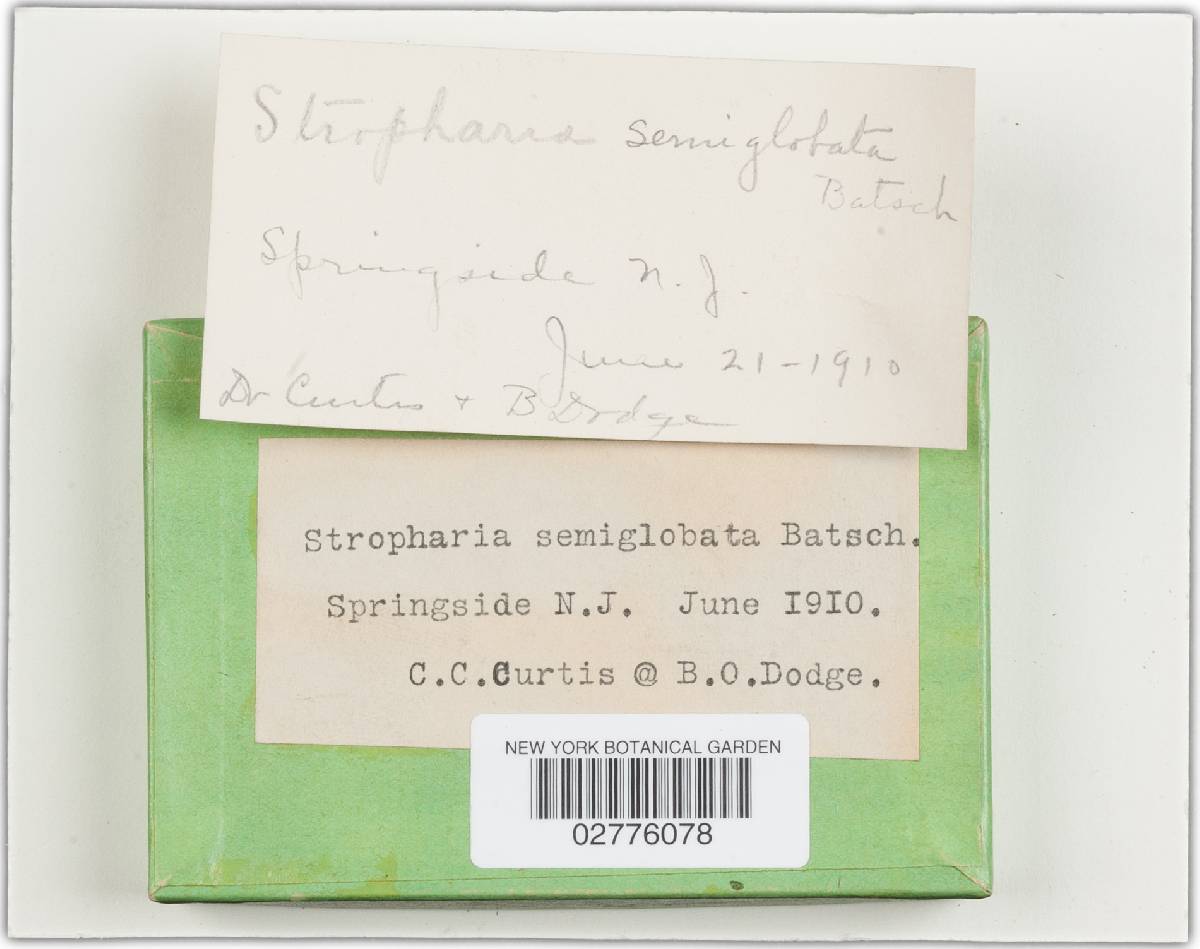 Stropharia semiglobata
Batsch
Springside N.J.
June 21-1910
Dr Curtis + B Dodge
Stropharia semiglobata Batsch.
Springside N.J. June I9IO.
C.C.Curtis @ B.O.Dodge.
NEW YORK BOTANICAL GARDEN
02776078